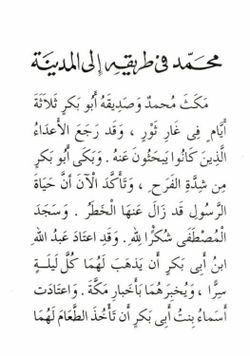 محمد في طريقه إلى المدينة
مَكَثَ مُحمدٌ وَصَدِيقَهُ أَبُو بَكرٍ ثَلَاثَةَ
أَيَّامٍ فِي غَارِ ثَوْرٍ ، وَقَد رَجَعَ الأَعدَاءُ
الَّذِينَ كَانُوا يَبحَثُونَ عَنهُ . وَبَكَى أَبُو بَكرٍ
مِن شِدَّةِ الفَرَحِ . وَتَأكَدَ الآنَ أَنَّ حَيَاةَ
الرَّسُولِ قَد زَالَ عَنهَا الخَطَرُ . وَسَجَدَ
المُصطَفَى شُكرًا لِلهِ . وَقَدِ اعتَادَ عَبدُ اللهِ
ابنُ أَبِى بَكرٍ أَن يَذهَبَ لَهُمَا كُلَّ لَيلَةٍ
سِرًّا ، وَيُخبِرَهُمَا بِأَخبَارِ مَكَّةَ . وَاعتَادَت
أَسمَاءُ بِنتُ أَبِى بَكرٍ أَن تَأخُذَ الطَّعَامَ لَهُمَا